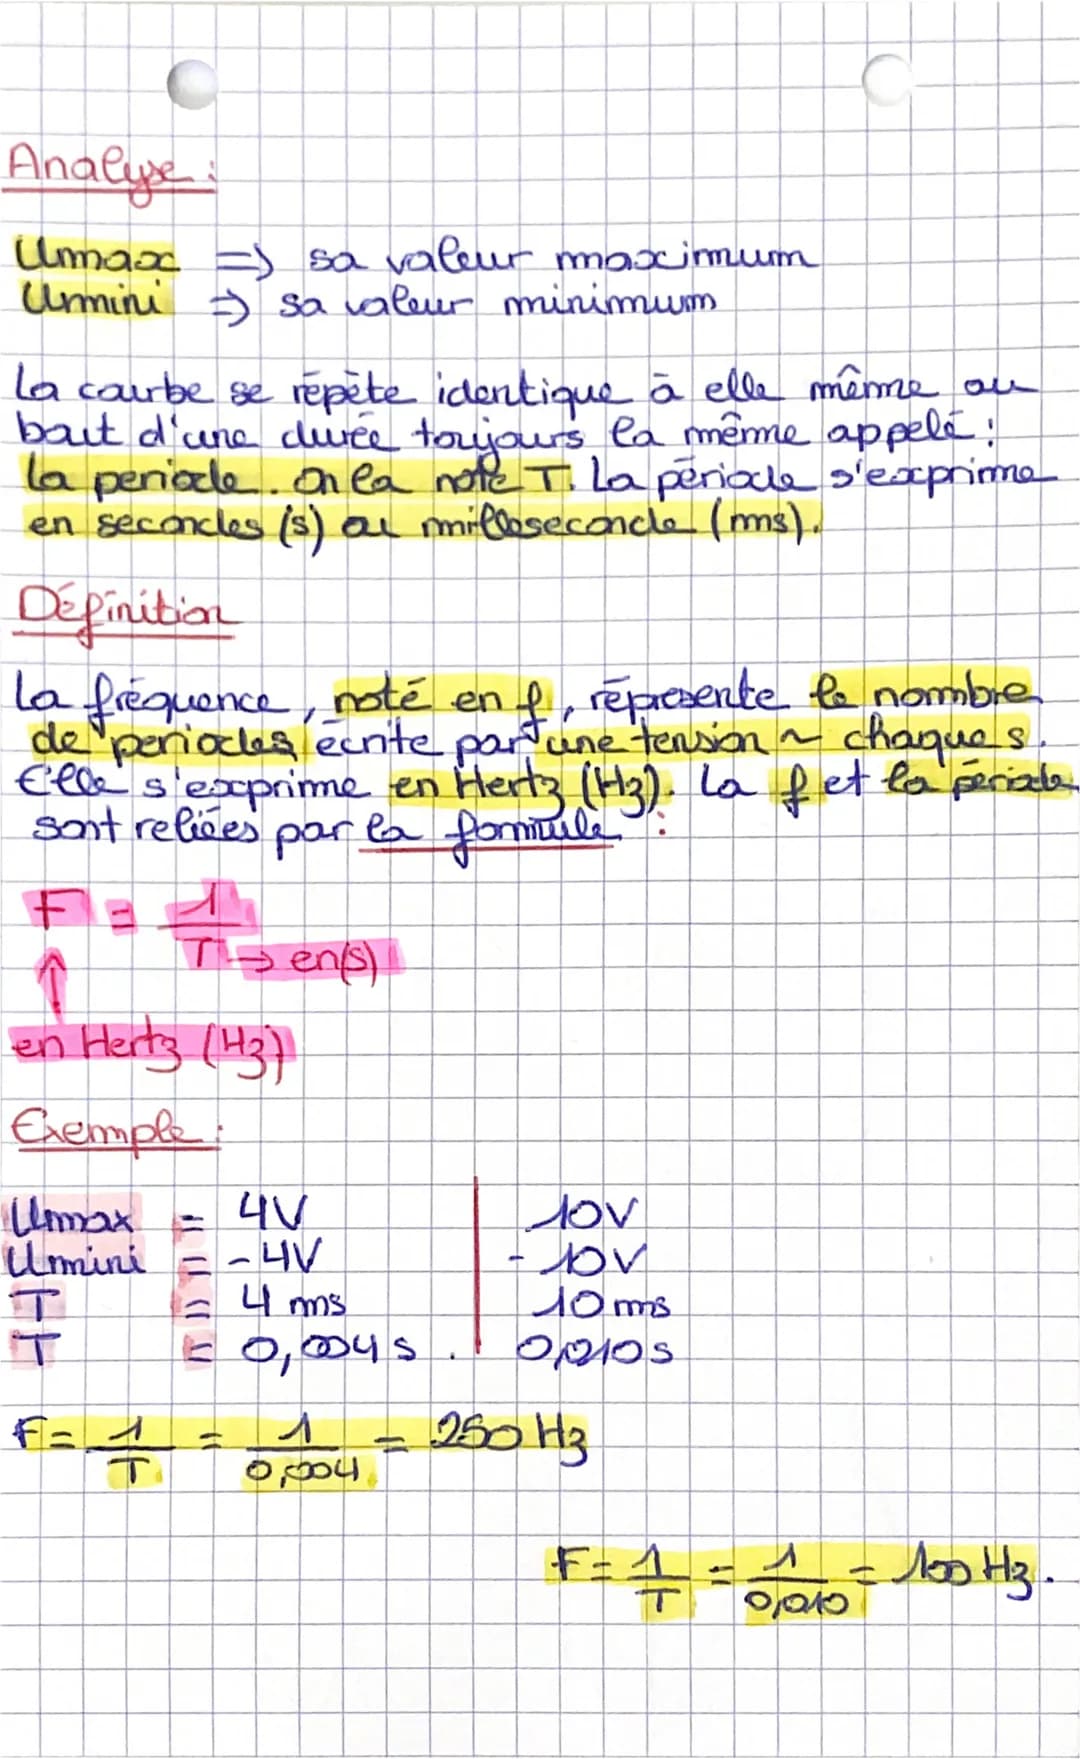 Analyse :
Umax => sa valeur maximum
Umini => sa valeur minimum
La courbe se répète identique à elle même au
bout d'une durée toujours la même appelé :
la periode. On la note T. La période s'exprime
en secondes (s) ou milleseconde (ms).
Définition
La fréquence, noté en f, répresente le nombre
de periodes écrite par une tension ~ chaque s.
Elle s'exprime en Hertz (Hz). La f et la période
sont reliées par la formule :
F = 1/T → en(s)
↑
en Hertz (Hz)
Exemple :
Umax = 4V | 10V
Umini = -4V | -10V
T = 4 ms | 10 ms
T = 0,004 s. | 0,010 s
F = 1/T = 1/0,004 = 250 Hz
F = 1/T = 1/0,010 = 100 Hz.